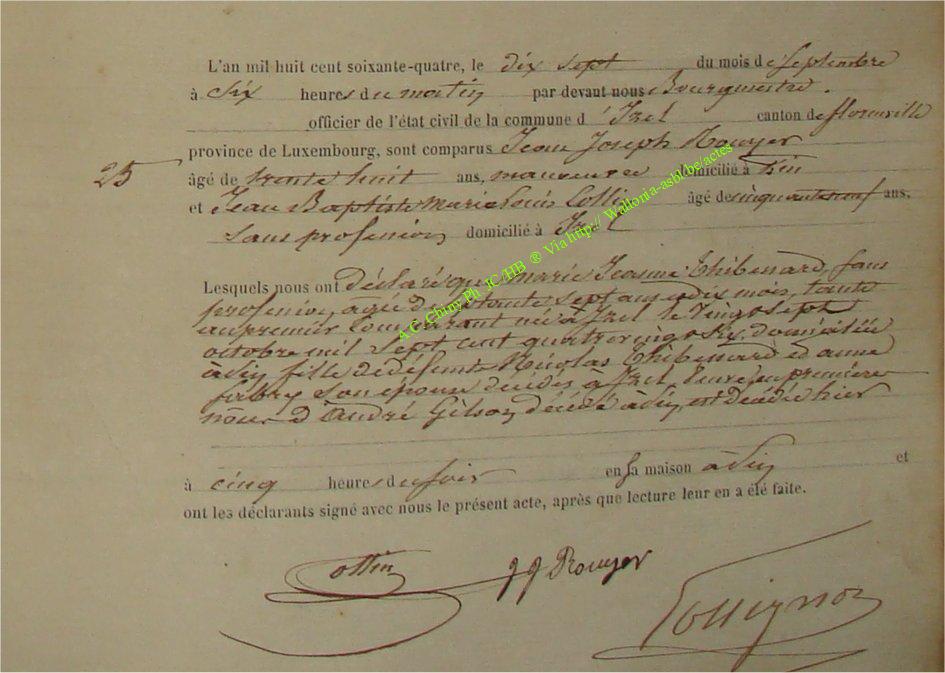 L'an mil huit cent soixante-quatre, le dix sept du mois de septembre
à six heures du matin par devant nous Bourgmestre.
officier de l'état civil de la commune d'Izel canton de florenville
province de Luxembourg, sont comparus Jean Joseph Rouyer
25 âgé de trente huit ans, domicilié à
et Jean Baptiste Marie Louis Collin âgé de cinquante neuf ans.
sans profession domicilié à Izel
Lesquels nous ont déclaré que Marie Jeanne Thibenard, sans
profession, agée de septante sept ans dix mois,
au premier né à Izel le vingt sept
octobre mil sept cent quatre vingt six, domiciliée
fille de défunts Nicolas Thibenard et anne
son épouse décédés à Izel, veuve en première
nôces d'André Gilson, décédé est décédée hier
à cinq heures du soir en sa maison et
ont les déclarants signé avec nous le présent acte, après que lecture leur en a été faite.
Collin JJ Rouyer
A G Chiny Ph JC/HB ® Via http:// Wallonia-asbl.be/actes